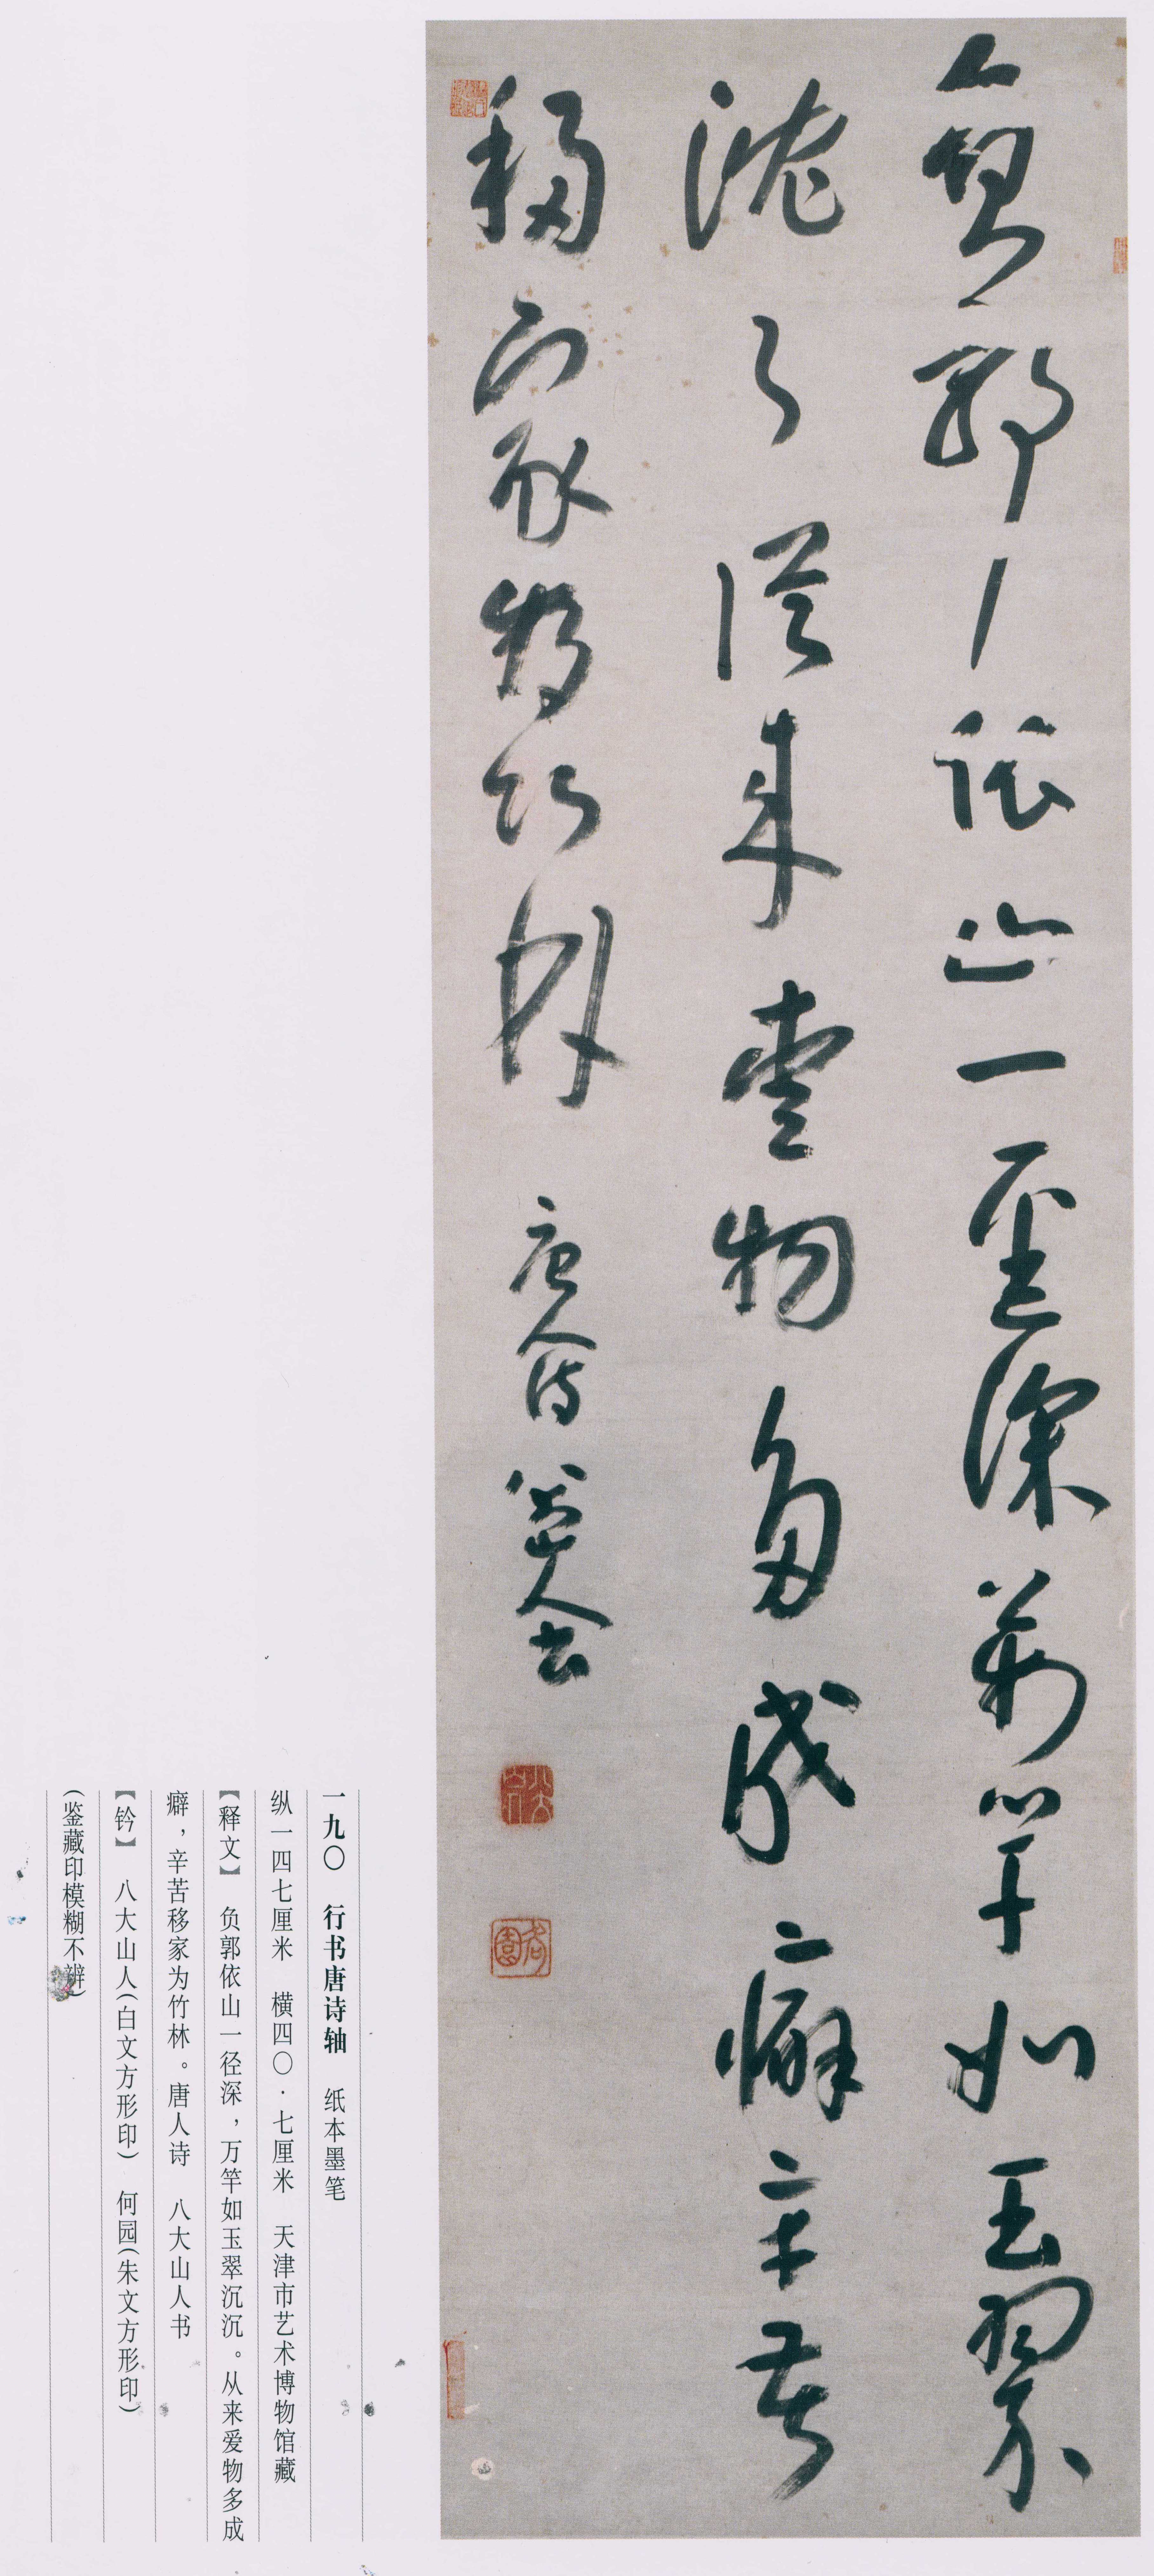 負郭依山一徑深萬竿如玉翠
沈々從來愛物多成癖辛苦
移家為竹林 唐人詩 八大山人書
八大山人
何園
一九〇 行书唐诗轴 纸本墨笔
纵一四七厘米 横四〇·七厘米 天津市艺术博物馆藏
【释文】 负郭依山一径深，万竿如玉翠沉沉。从来爱物多成
癖，辛苦移家为竹林。唐人诗 八大山人书
【钤】 八大山人(白文方形印) 何园(朱文方形印)
(鉴藏印模糊不辨)